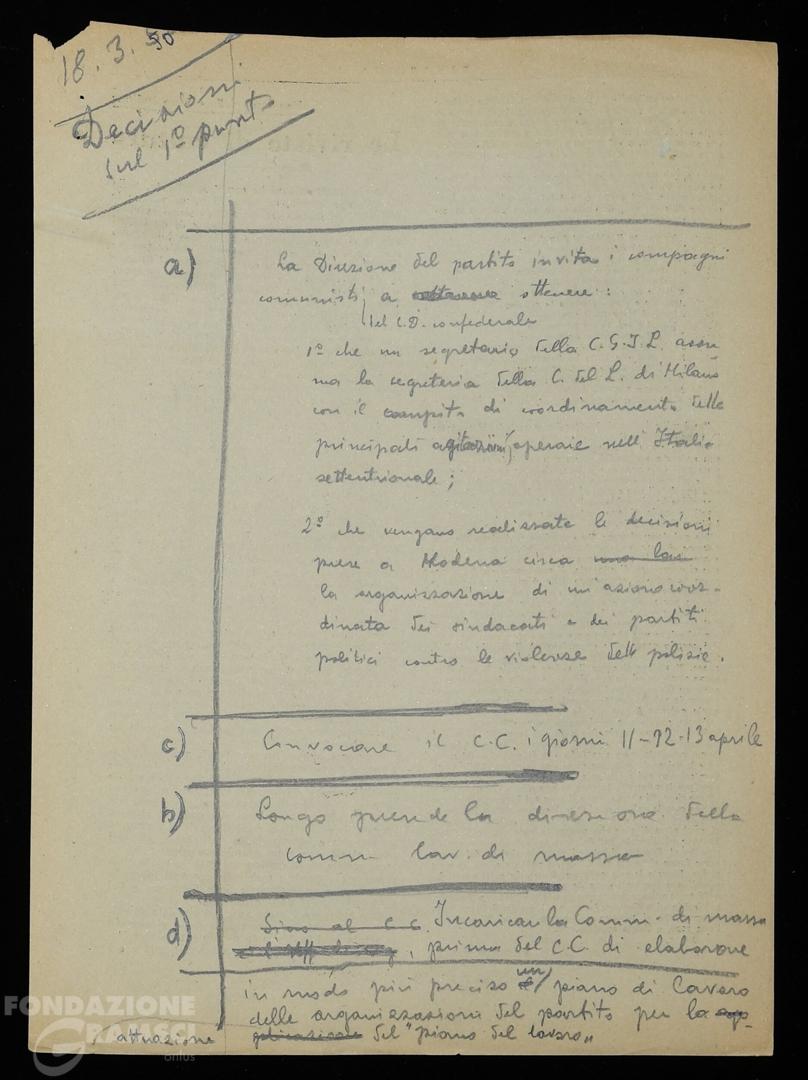 18.3.50
Decisioni
sul 1º punto
a)
La Direzione del partito invita i compagni
comunisti, a ottenere:
del C.D. confederale
1º che un segretario della C.G.I.L. assu
ma la segreteria della C. del L. di Milano
con il compito di coordinamento delle
principali agitazioni operaie nell'Italia
settentrionale;
2º che vengano realizzate le decisioni
prese a Modena circa una
la organizzazione di un'azione coor-
dinata dei sindacati e dei partiti
politici contro le violenze della polizia.
c)
Convocare il C.C. i giorni 11-12-13 aprile
b)
Longo prende la direzione della
comm lav. di massa
d)
Sino al C.C. Incaricare la Comm. di massa
, prima del C.C. di elaborare
in modo più preciso un piano di lavoro
delle organizzazioni del partito per la
attuazione del "piano del lavoro"
FONDAZIONE
GRAMSCI
onlus